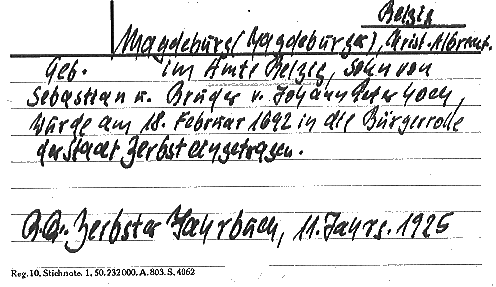 Belzig
Magdeburg (Magdeburger), Christ. Albrecht.
Geb. im Amte Belzig, Sohn von
Sebastian u. Bruder v. Johann Peter
wurde am 18. Februar 1692 in die Bürgerrolle
der Stadt Zerbst eingetragen.
Zerbster Jahrbuch, 11. Jahrg. 1925
Reg. 10. Stichnote. 1. 50. 232000. A. 803. S. 4062